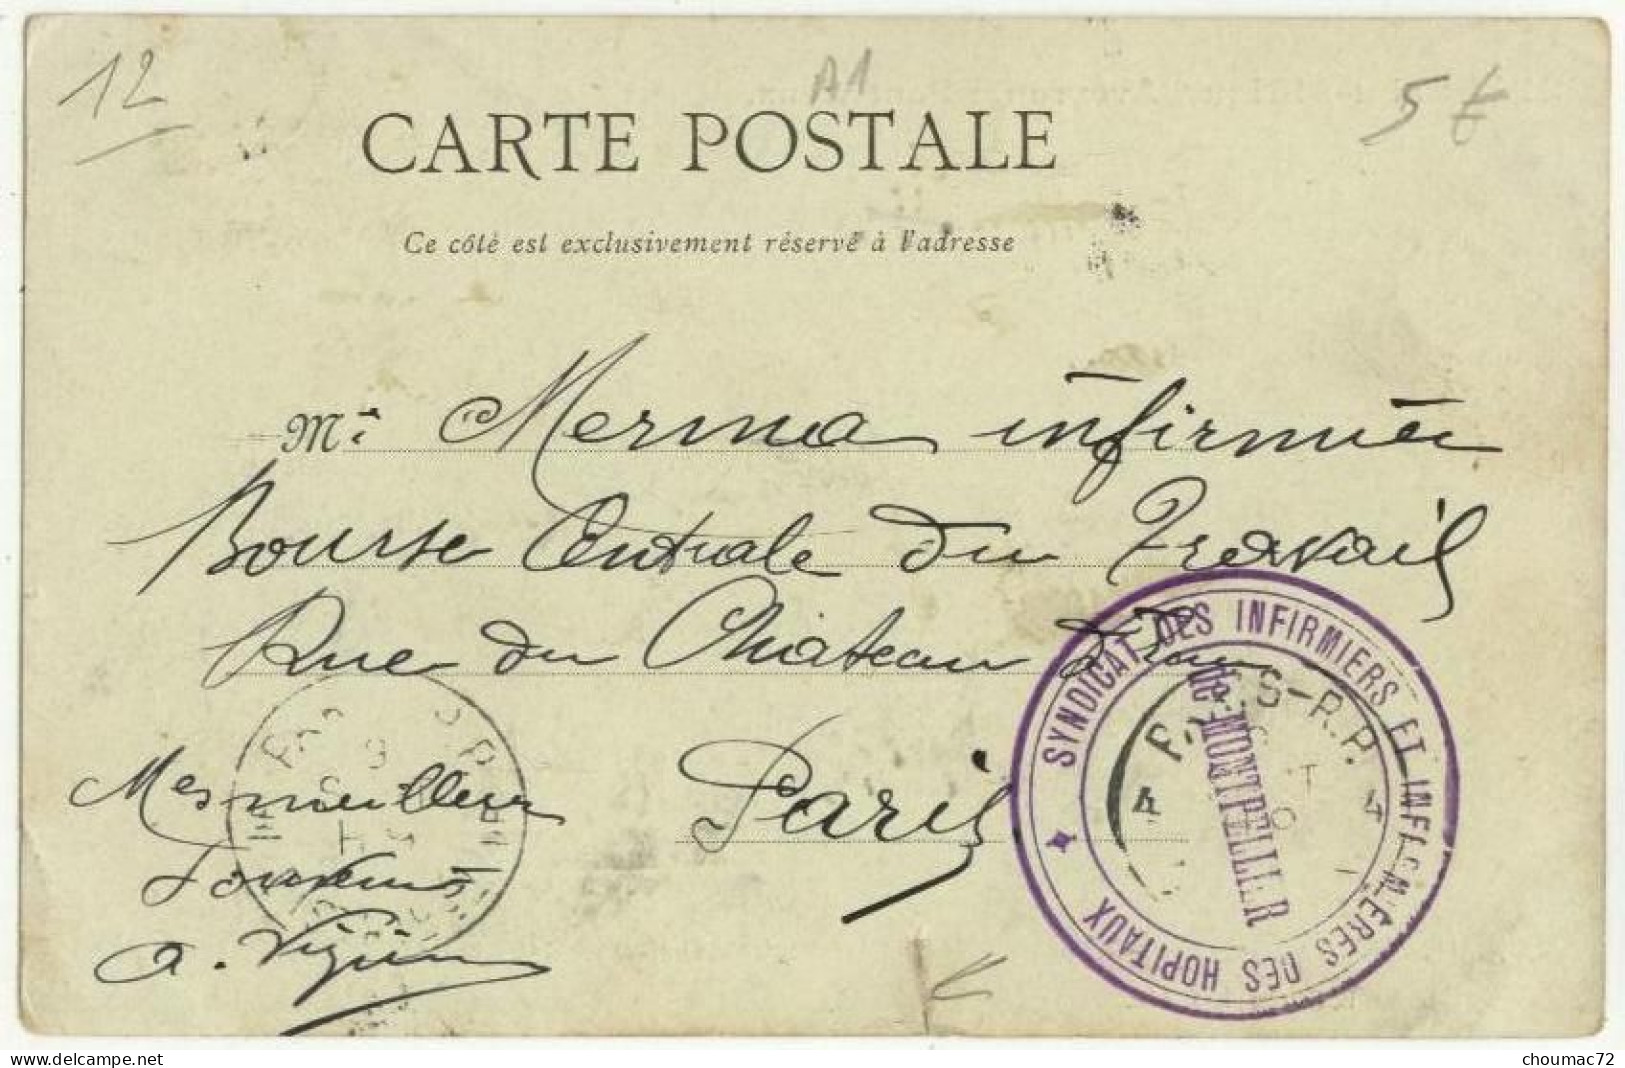 12
A1
5€
CARTE POSTALE
Ce côté est exclusivement réservé à l'adresse
Mr Merma infirmier
Bourse Centrale du Travail
Rue du Château d'Eau
Paris
Mes meilleurs
Souvenirs
a. Vigié
SYNDICAT DES INFIRMIERS ET INFIRMIERES DES HOPITAUX
de MONTPELLIER
PARIS-R.P.
4 4
choumac72